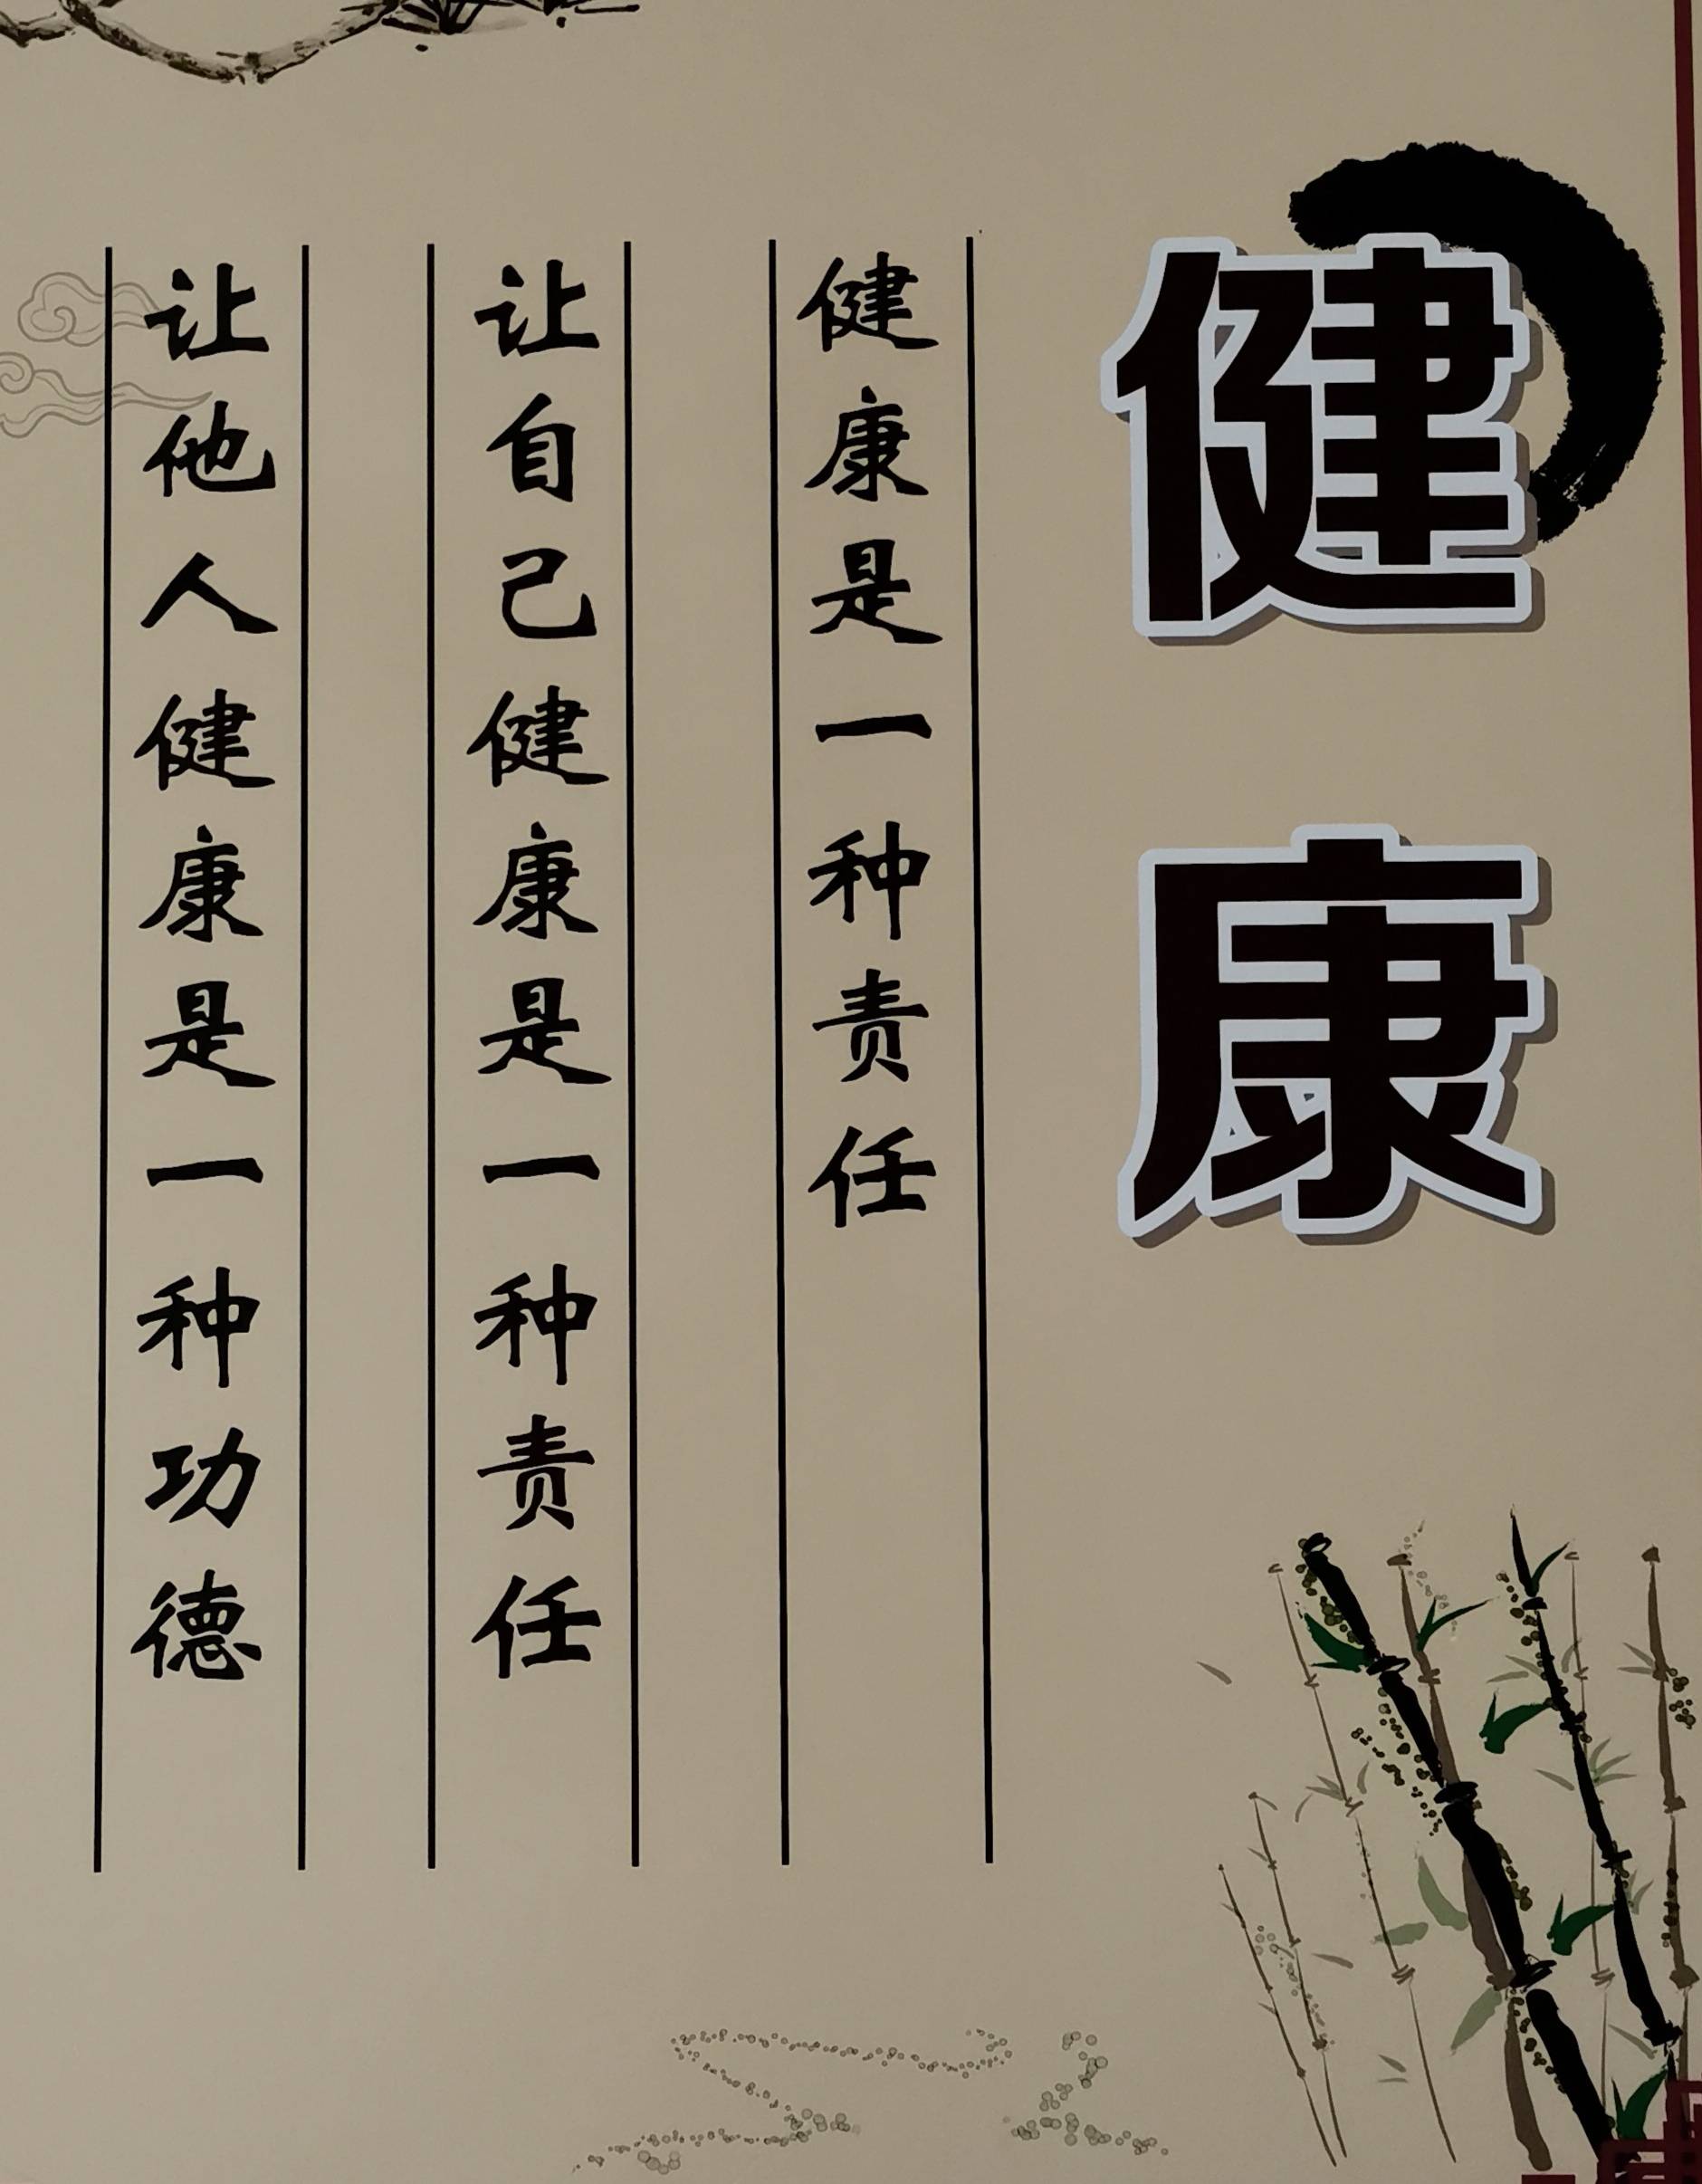 健康
健康是一种责任
让自己健康是一种责任
让他人健康是一种功德